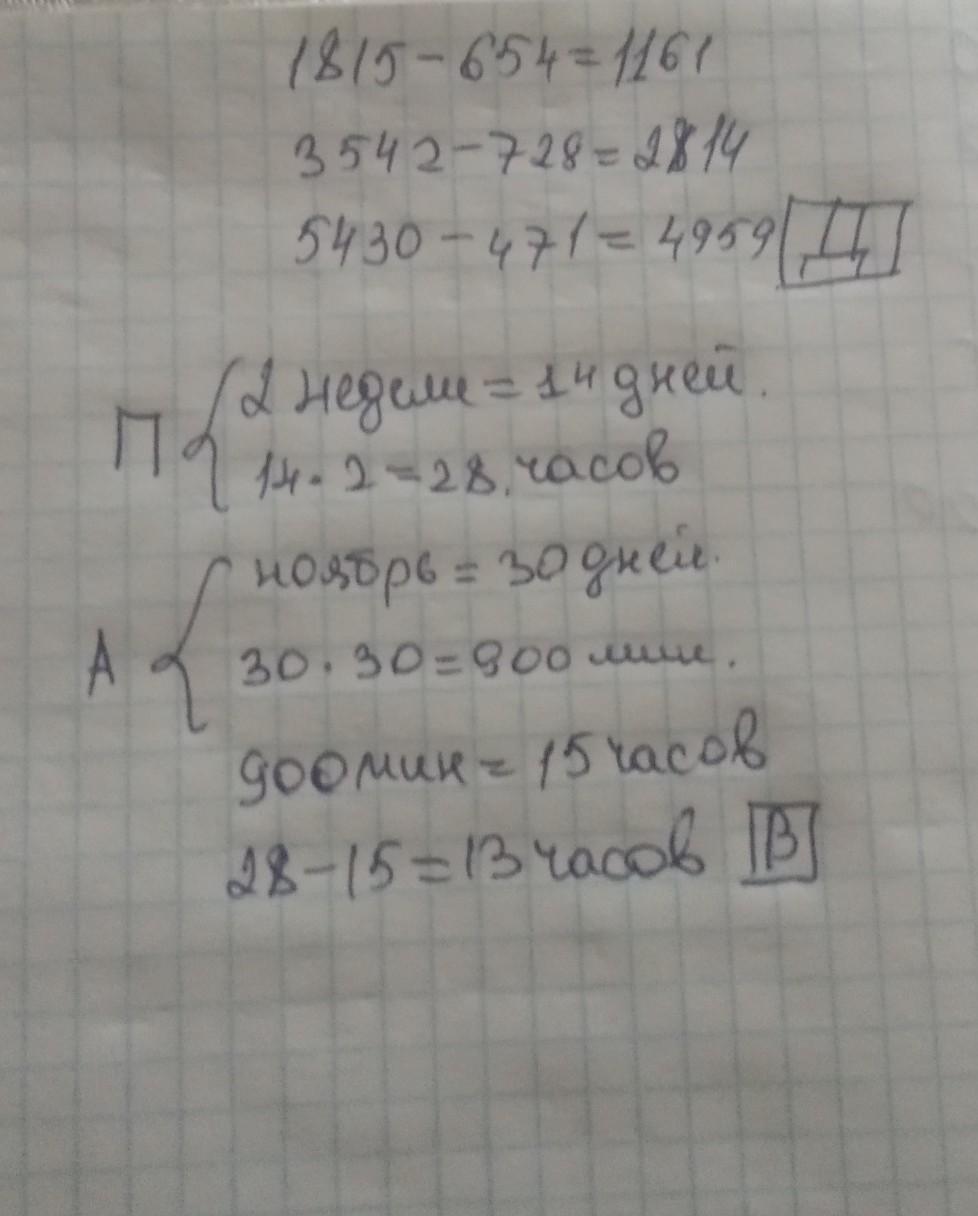 1815-654=1161
3542-728=2814
5430-471=4959 Д
П { 2 недели = 14 дней.
14·2=28. часов
А { ноябрь = 30 дней.
30·30=900 мин.
900 мин = 15 часов
28-15=13 часов В